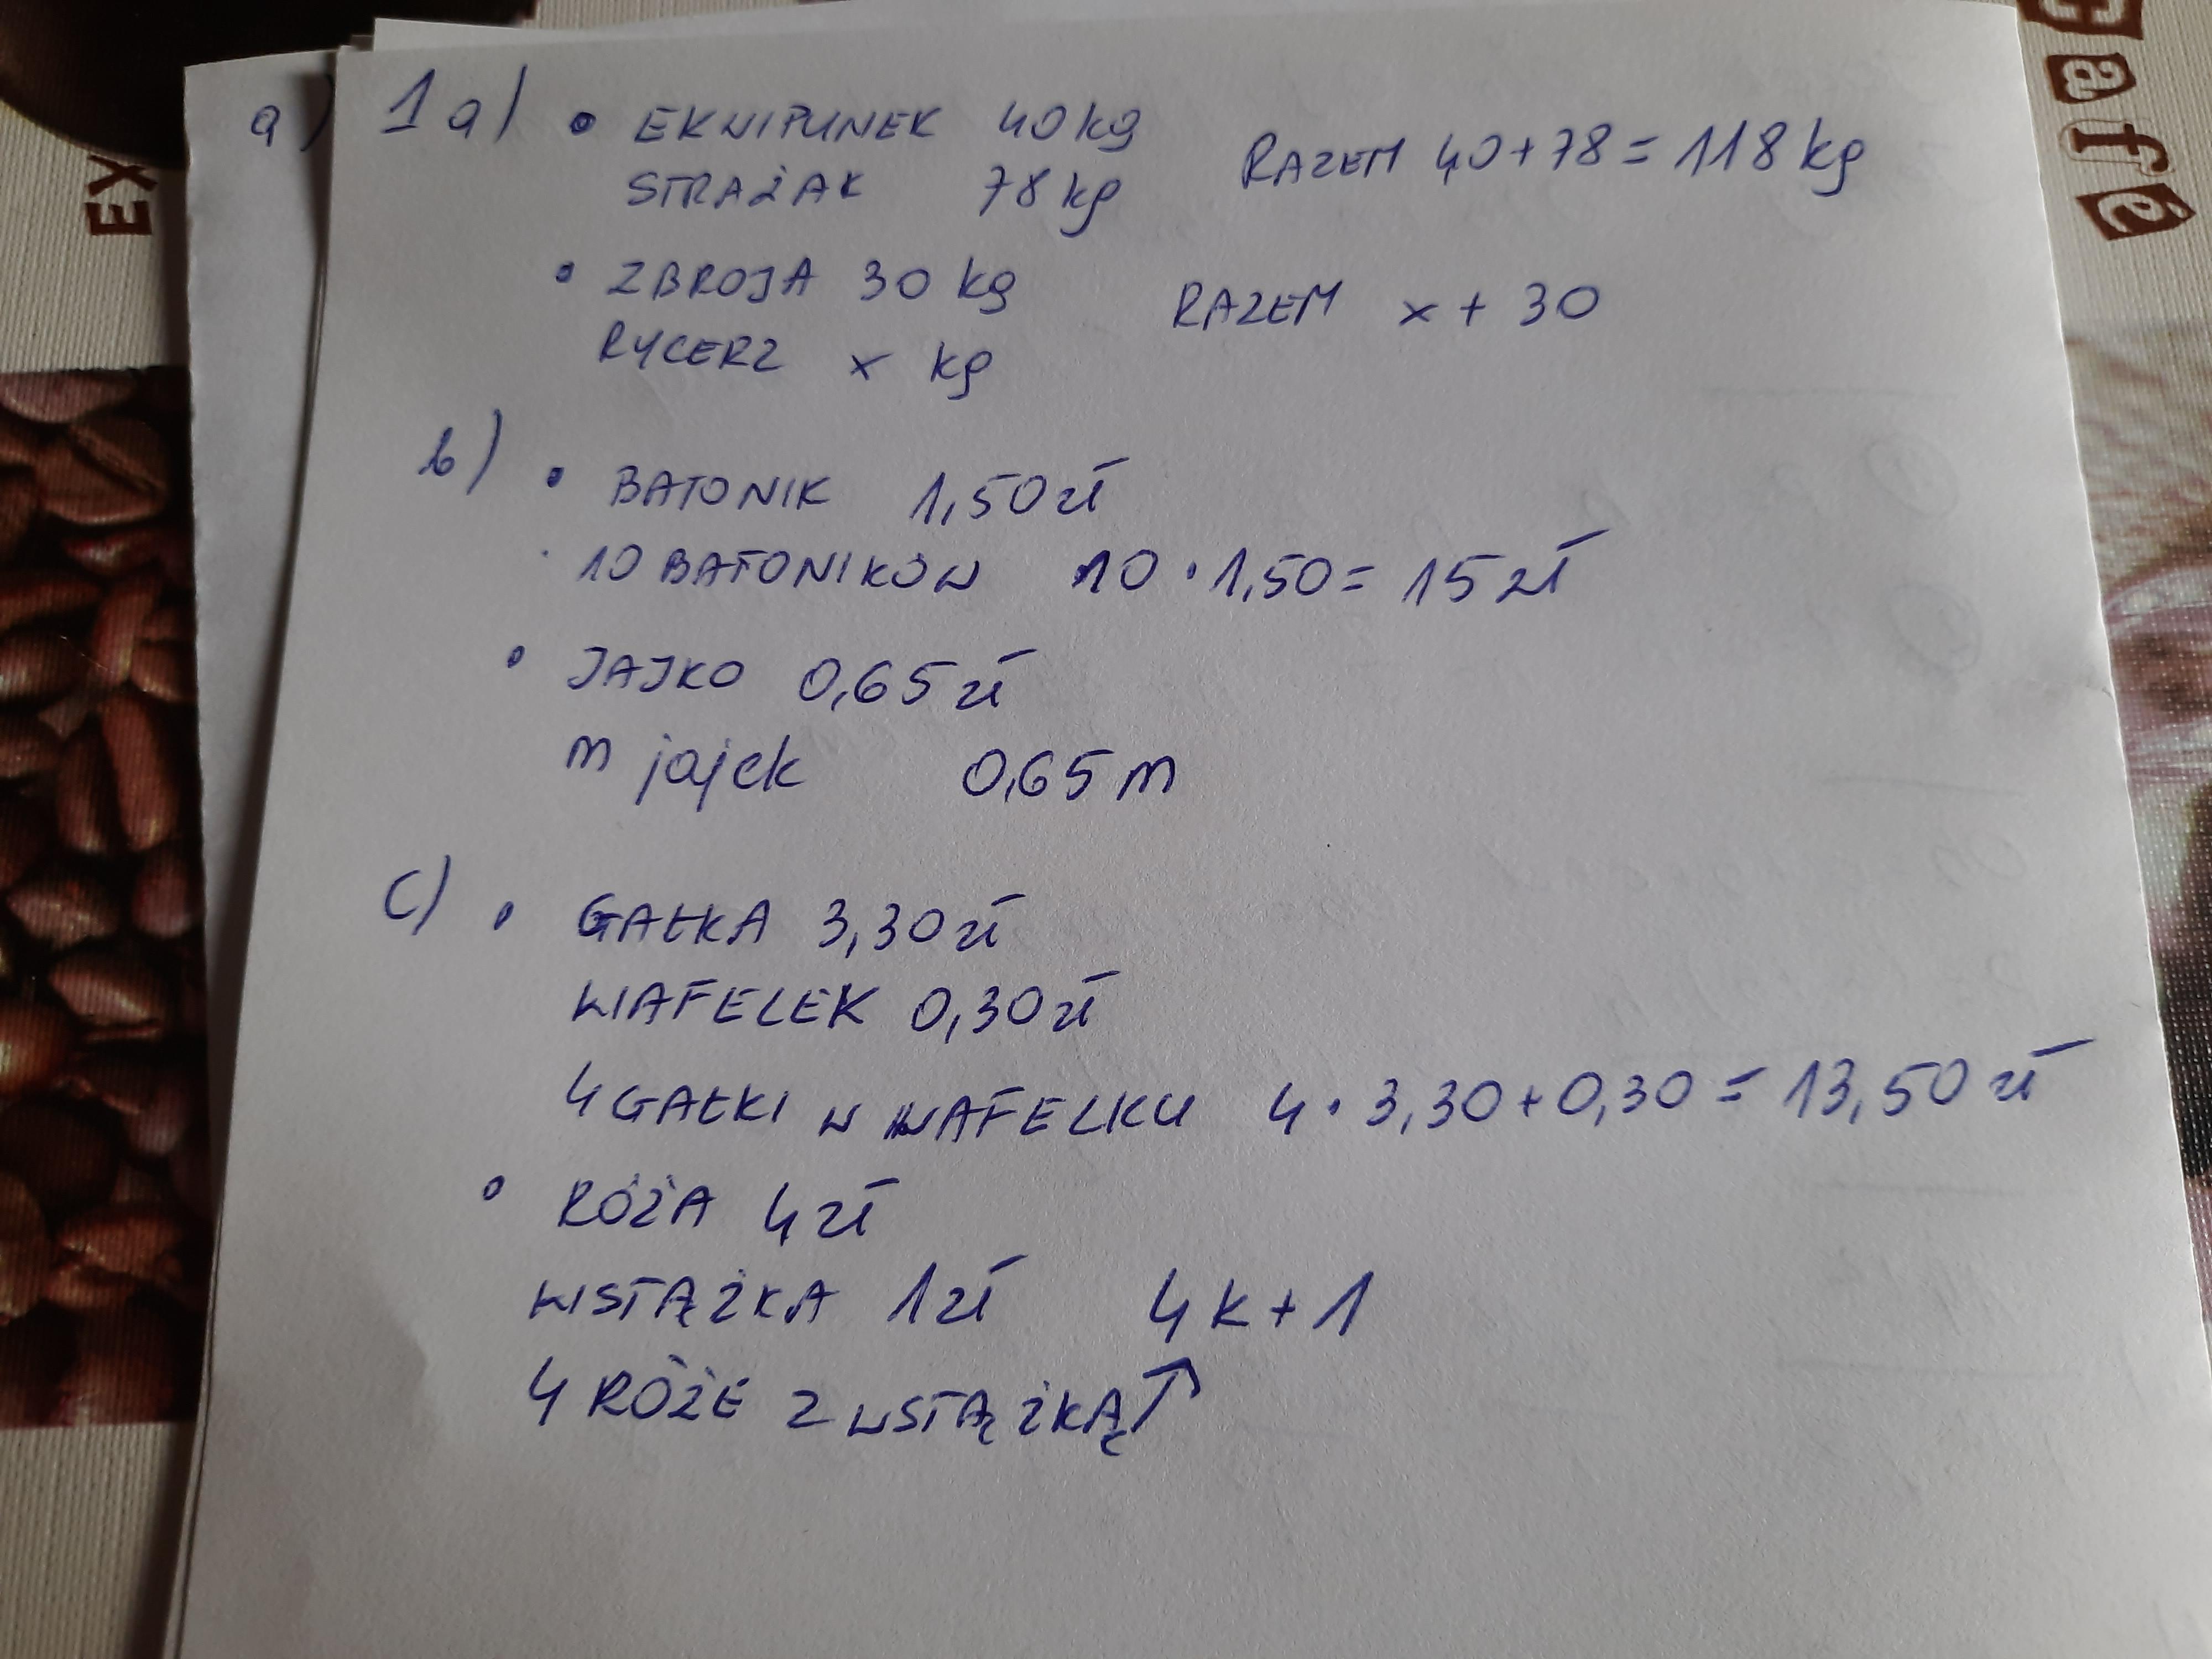 a)
1 a) • EKWIPUNEK 40 kg RAZEM 40 + 78 = 118 kg
STRAŻAK 78 kg
• ZBROJA 30 kg RAZEM x + 30
RYCERZ x kg
b) • BATONIK 1,50 zł
10 BATONIKÓW 10 • 1,50 = 15 zł
• JAJKO 0,65 zł
m jajek 0,65 m
c) • GAŁKA 3,30 zł
WAFELEK 0,30 zł
4 GAŁKI W WAFELKU 4 • 3,30 + 0,30 = 13,50 zł
• RÓŻA 4 zł
WSTĄŻKA 1 zł 4k + 1
4 RÓŻE Z WSTĄŻKĄ ↑
EX
afé